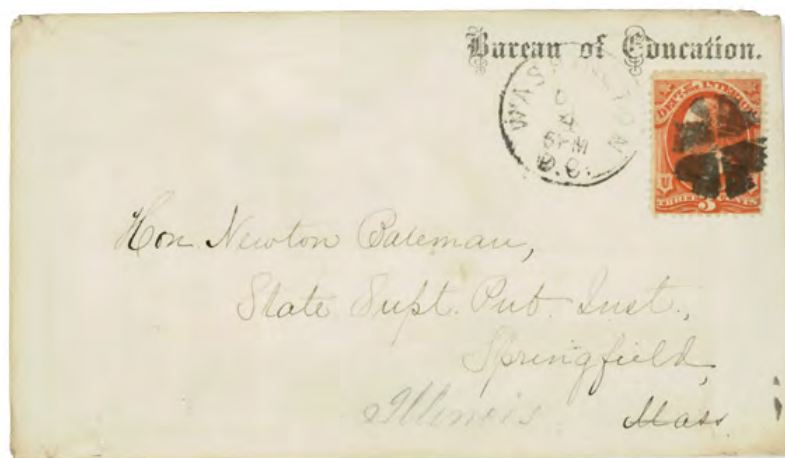 Bureau of Education.
WASHINGTON
O
4
5PM
D.C.
DEPT. OF THE INTERIOR
U
THREE 3 CENTS
Hon. Newton Bateman,
State Supt. Pub. Inst.,
Springfield,
Illinois Mass.